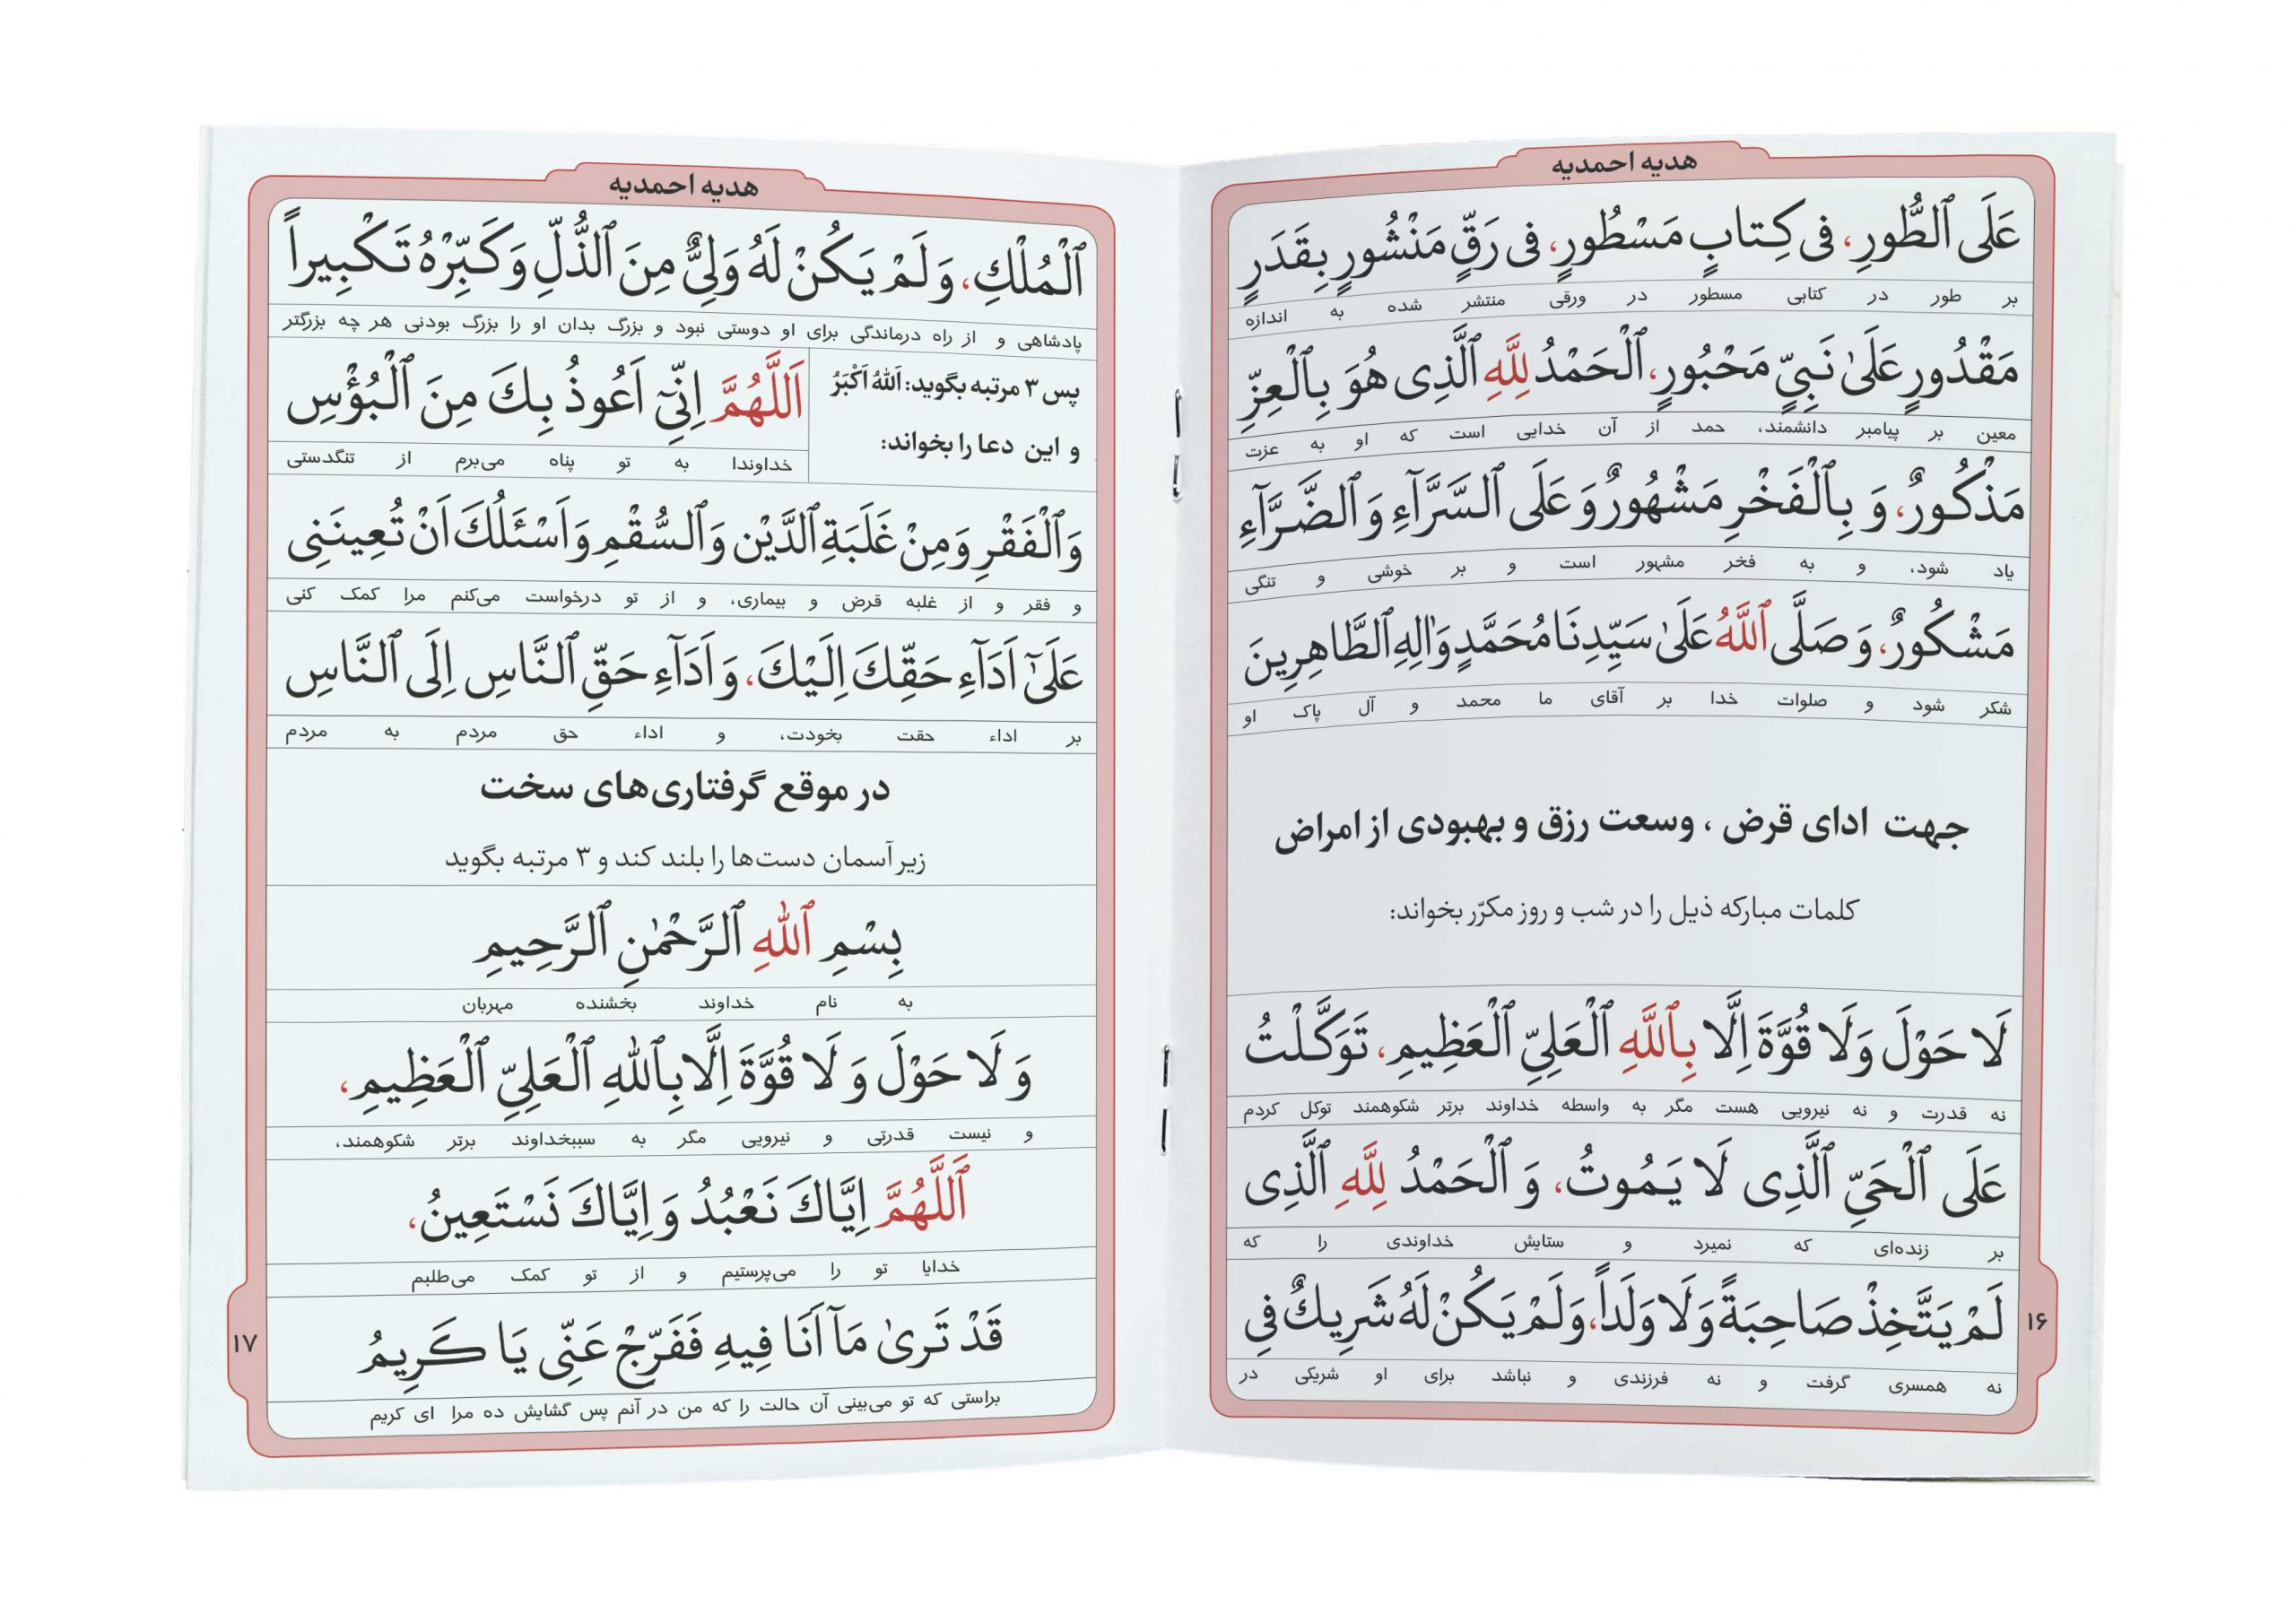 هدیه احمدیه
عَلَى ٱلطُّورِ، فى كِتابٍ مَسْطُورٍ، فى رَقٍّ مَنْشُورٍ بِقَدَرٍ
بر طور در کتابی مسطور در ورقی منتشر شده به اندازه
مَقْدُورٍ عَلىٰ نَبِىٍّ مَحْبُورٍ، اَلْحَمْدُ لِلّٰهِ ٱلَّذِى هُوَ بِالْعِزِّ
معین بر پیامبر دانشمند، حمد از آن خدایی است که او به عزت
مَذْكُورٌ، وَ بِالْفَخْرِ مَشْهُورٌ وَ عَلَى ٱلسَّرَّآءِ وَ ٱلضَّرَّآءِ
یاد شود، و به فخر مشهور است و بر خوشی و تنگی
مَشْكُورٌ، وَ صَلَّى ٱللَّهُ عَلىٰ سَيِّدِنَا مُحَمَّدٍ وَاٰلِهِ ٱلطَّاهِرِينَ
شکر شود و صلوات خدا بر آقای ما محمد و آل پاک او
جهت ادای قرض ، وسعت رزق و بهبودی از امراض
کلمات مبارکه ذیل را در شب و روز مکرّر بخواند:
لَا حَوْلَ وَلَا قُوَّةَ اِلَّا بِٱللَّهِ ٱلْعَلِىِّ ٱلْعَظِيمِ، تَوَكَّلْتُ
نه قدرت و نه نیرویی هست مگر به واسطه خداوند برتر شکوهمند توکل کردم
عَلَى ٱلْحَىِّ ٱلَّذِى لَا يَمُوتُ، وَ ٱلْحَمْدُ لِلَّهِ ٱلَّذِى
بر زنده‌ای که نمیرد و ستایش خداوندی را که
لَمْ يَتَّخِذْ صَاحِبَةً وَلَا وَلَداً، وَلَمْ يَكُنْ لَهُ شَرِيكٌ فِى
نه همسری گرفت و نه فرزندی و نباشد برای او شریکی در
۱۶
هدیه احمدیه
ٱلْمُلْكِ، وَلَمْ يَكُنْ لَهُ وَلِىٌّ مِنَ ٱلذُّلِّ وَكَبِّرْهُ تَكْبِيراً
پادشاهی و از راه درماندگی برای او دوستی نبود و بزرگ بدان او را بزرگ بودنی هر چه بزرگتر
پس ۳ مرتبه بگوید: اَللهُ اَكْبَرُ
و این دعا را بخواند:
اَللَّهُمَّ اِنِّىٓ اَعُوذُ بِكَ مِنَ ٱلْبُؤْسِ
خداوندا به تو پناه می‌برم از تنگدستی
وَٱلْفَقْرِ وَمِنْ غَلَبَةِ ٱلدَّيْنِ وَٱلسُّقْمِ وَاَسْئَلُكَ اَنْ تُعِينَنِى
و فقر و از غلبه قرض و بیماری، و از تو درخواست می‌کنم مرا کمک کنی
عَلىٰٓ اَدَآءِ حَقِّكَ اِلَيْكَ، وَ اَدَآءِ حَقِّ ٱلنَّاسِ اِلَى ٱلنَّاسِ
بر اداء حقت بخودت، و اداء حق مردم به مردم
در موقع گرفتاری‌های سخت
زیر آسمان دست‌ها را بلند کند و ۳ مرتبه بگوید
بِسْمِ ٱللهِ ٱلرَّحْمٰنِ ٱلرَّحِيمِ
به نام خداوند بخشنده مهربان
وَ لَا حَوْلَ وَ لَا قُوَّةَ اِلَّا بِٱللهِ ٱلْعَلِىِّ ٱلْعَظِيمِ،
و نیست قدرتی و نیرویی مگر به سببخداوند برتر شکوهمند،
اَللَّهُمَّ اِيَّاكَ نَعْبُدُ وَ اِيَّاكَ نَسْتَعِينُ،
خدایا تو را می‌پرستیم و از تو کمک می‌طلبم
قَدْ تَرىٰ مَآ اَنَا فِيهِ فَفَرِّجْ عَنِّى يَا كَرِيمُ
براستی که تو می‌بینی آن حالت را که من در آنم پس گشایش ده مرا ای کریم
۱۷